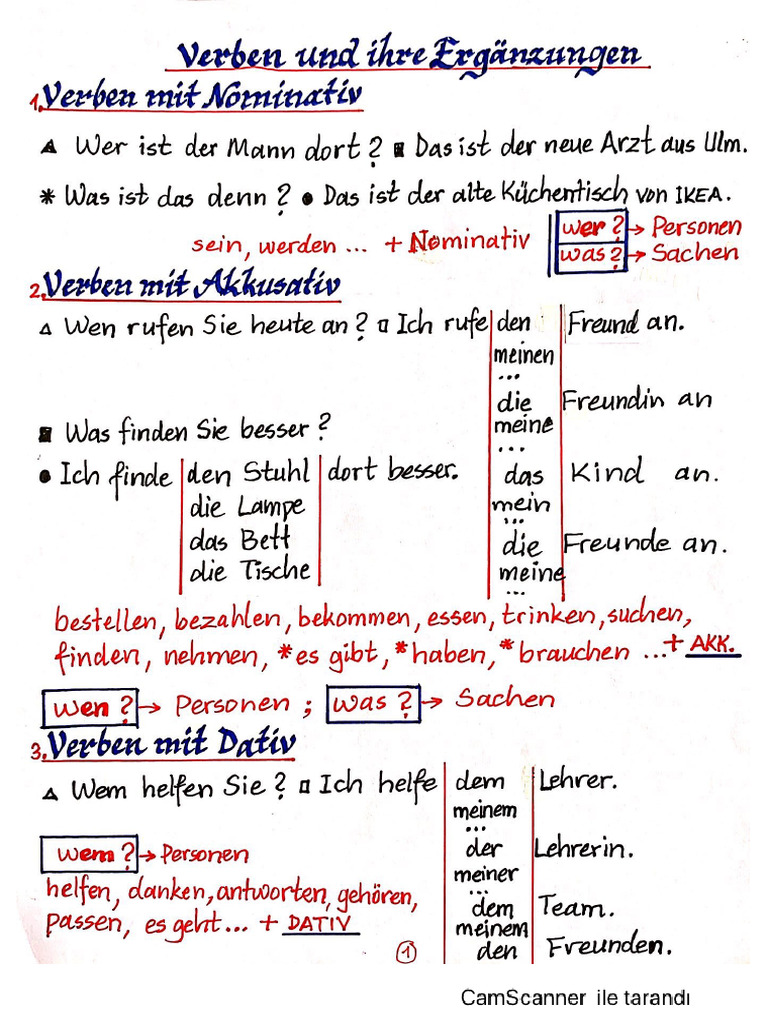 Verben und ihre Ergänzungen
1. Verben mit Nominativ
▲ Wer ist der Mann dort? ■ Das ist der neue Arzt aus Ulm.
* Was ist das denn? ● Das ist der alte Küchentisch von IKEA.
sein, werden ... + Nominativ
wer? → Personen
was? → Sachen
2. Verben mit Akkusativ
△ Wen rufen Sie heute an? □ Ich rufe den Freund an.
meinen
...
die Freundin an
meine
...
das Kind an.
mein
...
die Freunde an.
meine
...
■ Was finden Sie besser?
● Ich finde den Stuhl dort besser.
die Lampe
das Bett
die Tische
bestellen, bezahlen, bekommen, essen, trinken, suchen,
finden, nehmen, *es gibt, *haben, *brauchen ... + AKK.
wen? → Personen ; was? → Sachen
3. Verben mit Dativ
△ Wem helfen Sie? □ Ich helfe dem Lehrer.
meinem
...
der Lehrerin.
meiner
...
dem Team.
meinem
den Freunden.
wem? → Personen
helfen, danken, antworten, gehören,
passen, es geht... + DATIV
1
CamScanner ile tarandı